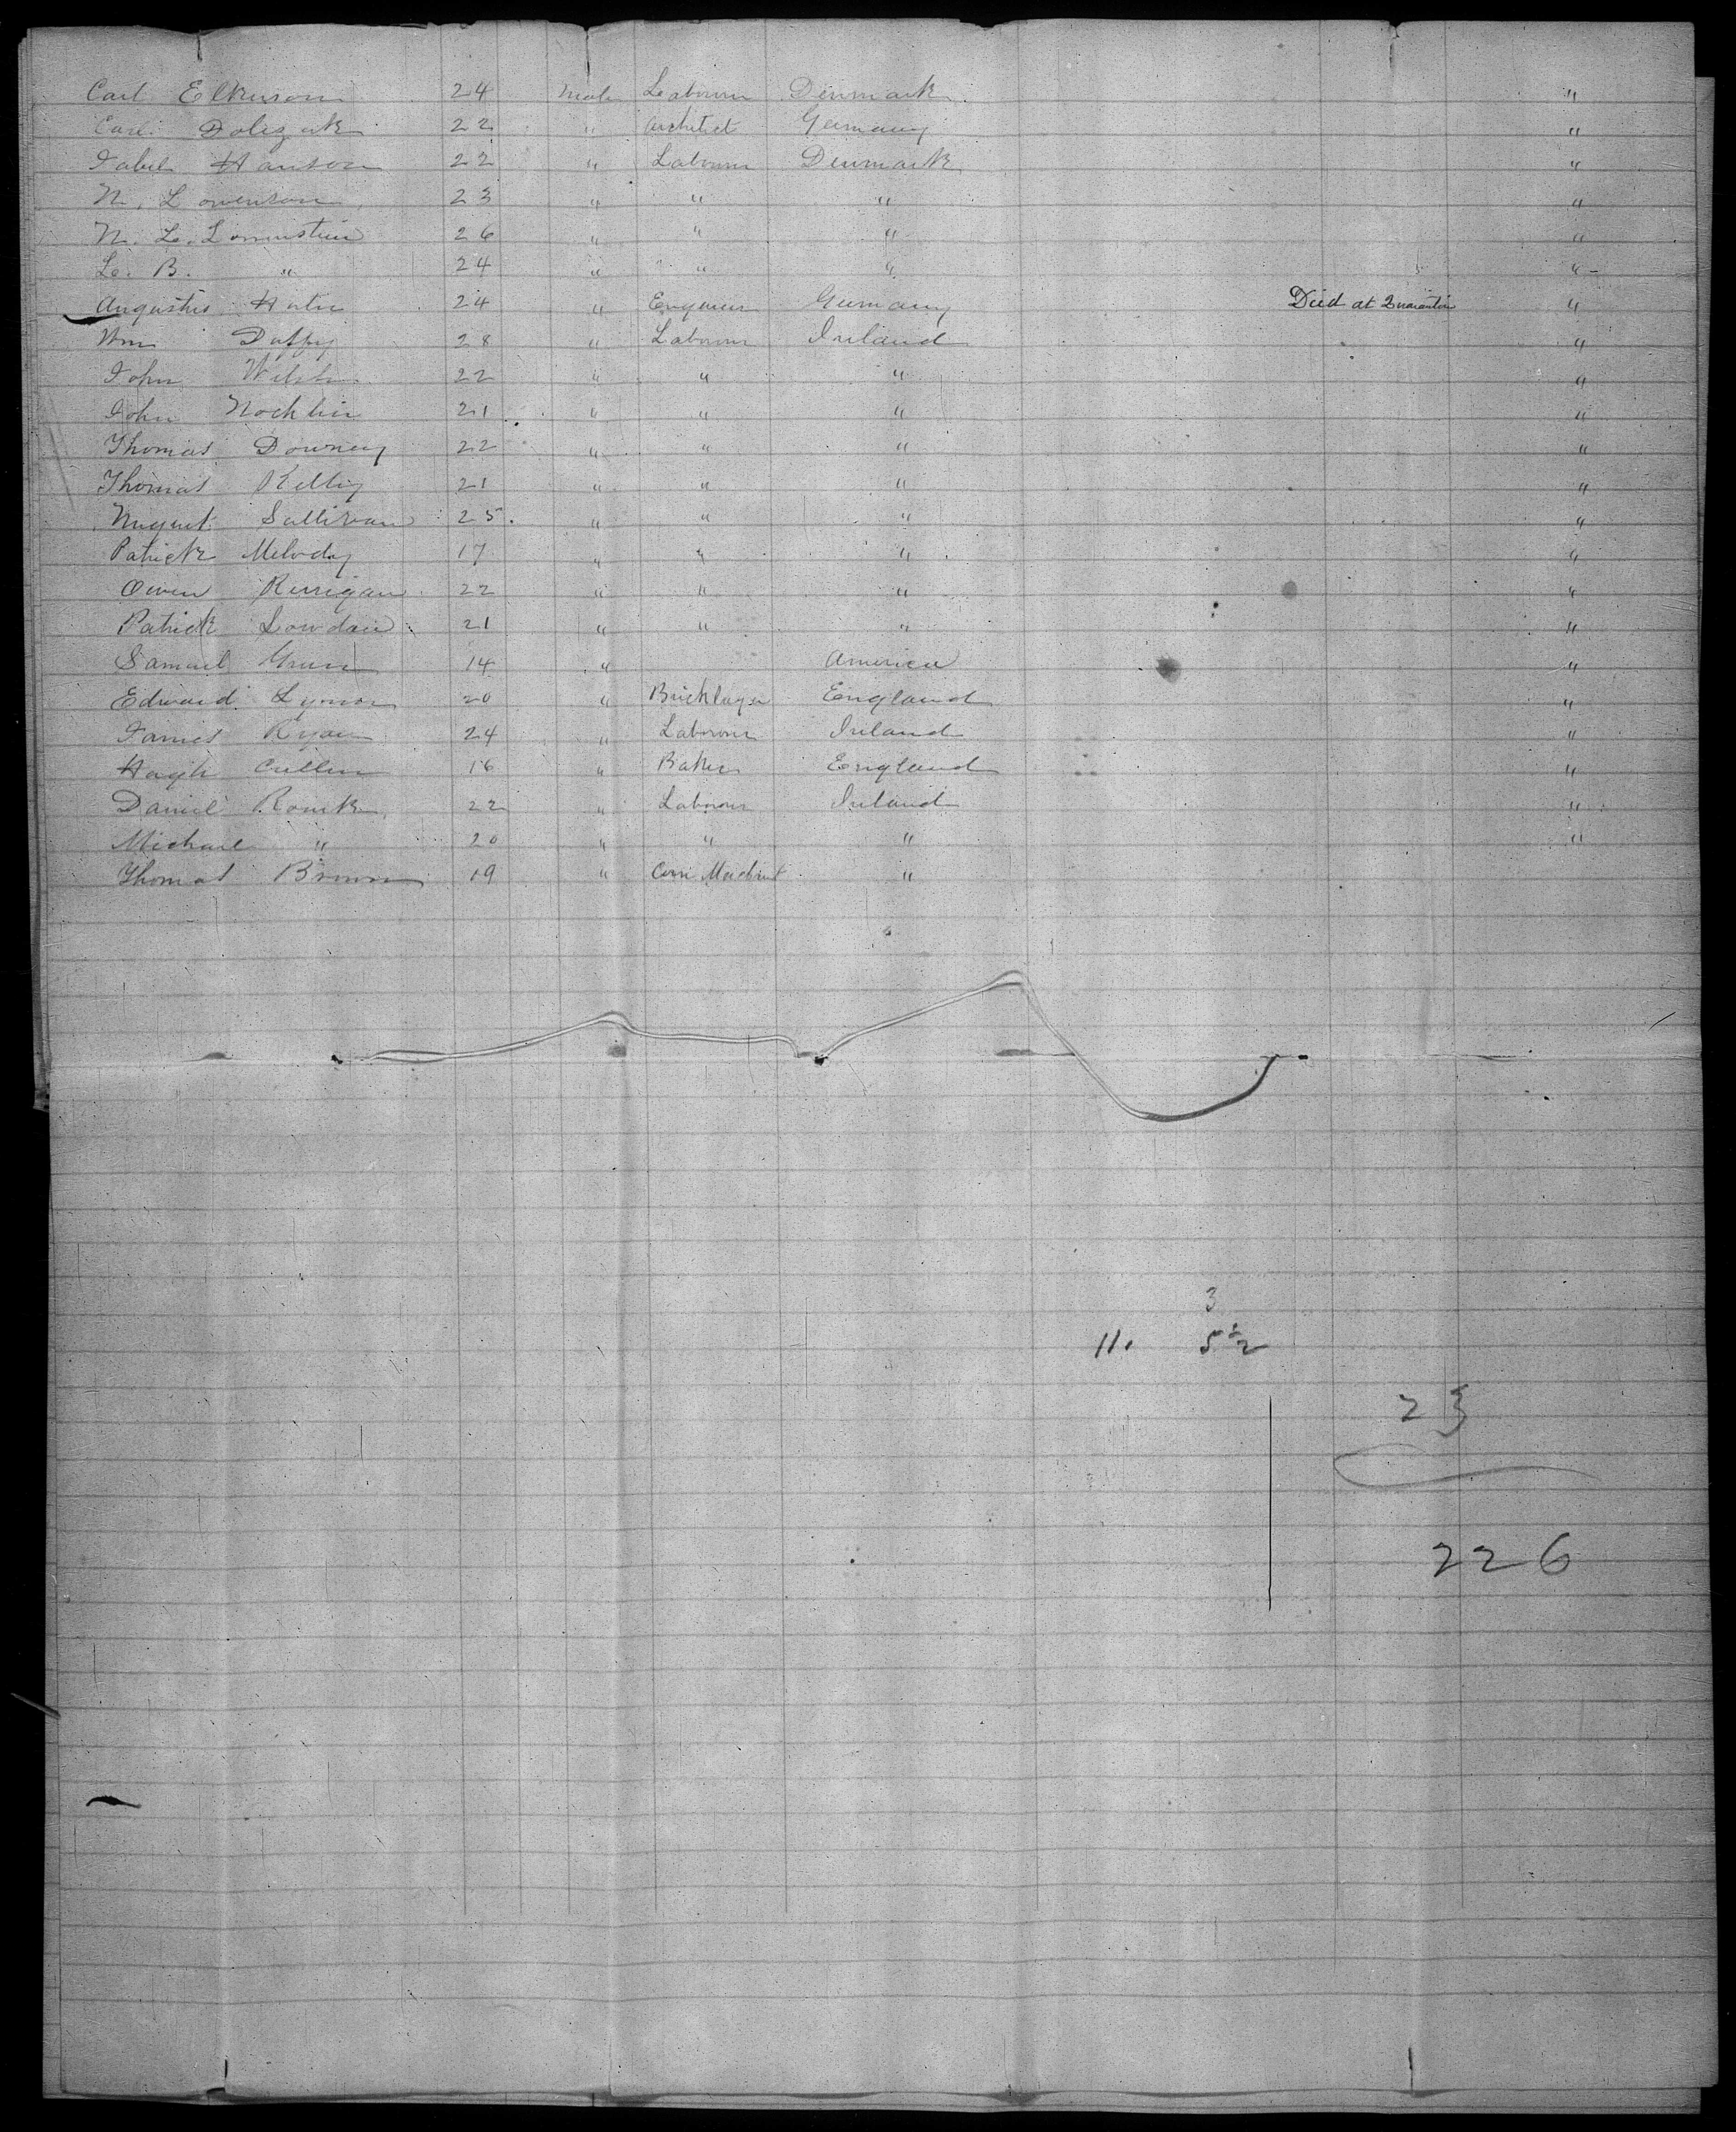 Carl Elkurson 24 Male Labourer Denmark "
Carl 22 " Architect Germany "
Hanson 22 " Labourer Denmark "
N. Lowenson 23 " " " "
N. L. Lowenstein 26 " " " "
L. B. " 24 " " " "
Augustus 24 " Engineer Germany Died at Quarantine "
Wm Duffy 28 " Labourer Ireland "
John 22 " " " "
John Nochlin 21 " " " "
Thomas Downey 22 " " " "
Thomas Kelly 21 " " " "
Nugent Sullivan 25 " " " "
Patrick Melody 17 " " " "
Owen Kerrigan 22 " " " "
Patrick Lowdan 21 " " " "
Samuel Green 14 " America "
Edward Lyman 20 " Bricklayer England "
James Ryan 24 " Labourer Ireland "
Hugh Cullen 16 " Baker England "
Daniel Rourk 22 " Labourer Ireland "
Michael " 20 " " " "
Thomas Brown 19 " Corn Merchant "
3
11. 5½
23
226